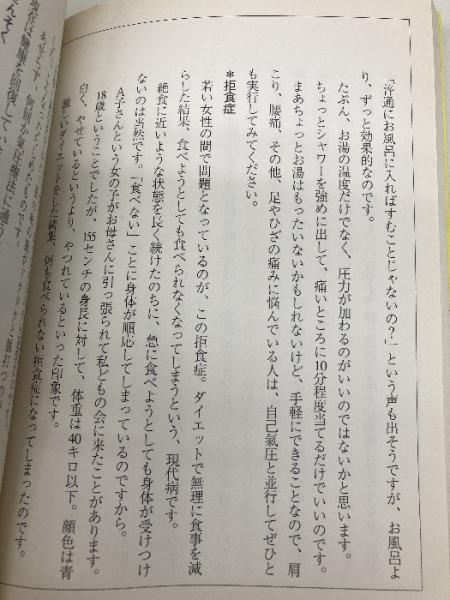 「普通にお風呂に入ればすむことじゃないの？」という声も出そうですが、お風呂よ
り、ずっと効果的なのです。
たぶん、お湯の温度だけでなく、圧力が加わるのがいいのではないかと思います。
ちょっとシャワーを強めに出して、痛いところに10分程度当てるだけでいいのです。
まあちょっとお湯はもったいないかもしれないけど、手軽にできることなので、肩
こり、腰痛、その他、足やひざの痛みに悩んでいる人は、自己氣圧と並行してぜひと
も実行してみてください。
＊拒食症
若い女性の間で問題となっているのが、この拒食症。ダイエットで無理に食事を減
らした結果、食べようとしても食べられなくなってしまうという、現代病です。
絶食に近いような状態を長く続けたのちに、急に食べようとしても身体が受けつけ
ないのは当然です。「食べない」ことに身体が順応してしまっているのですから。
A子さんという女の子がお母さんに引っ張られて私どもの会に来たことがあります。
18歳ということでしたが、155センチの身長に対して、体重は40キロ以下。顔色は青
白く、やせているというより、やつれているといった印象です。
激しいダイエットをした結果、何も食べられない拒食症になってしまったのです。